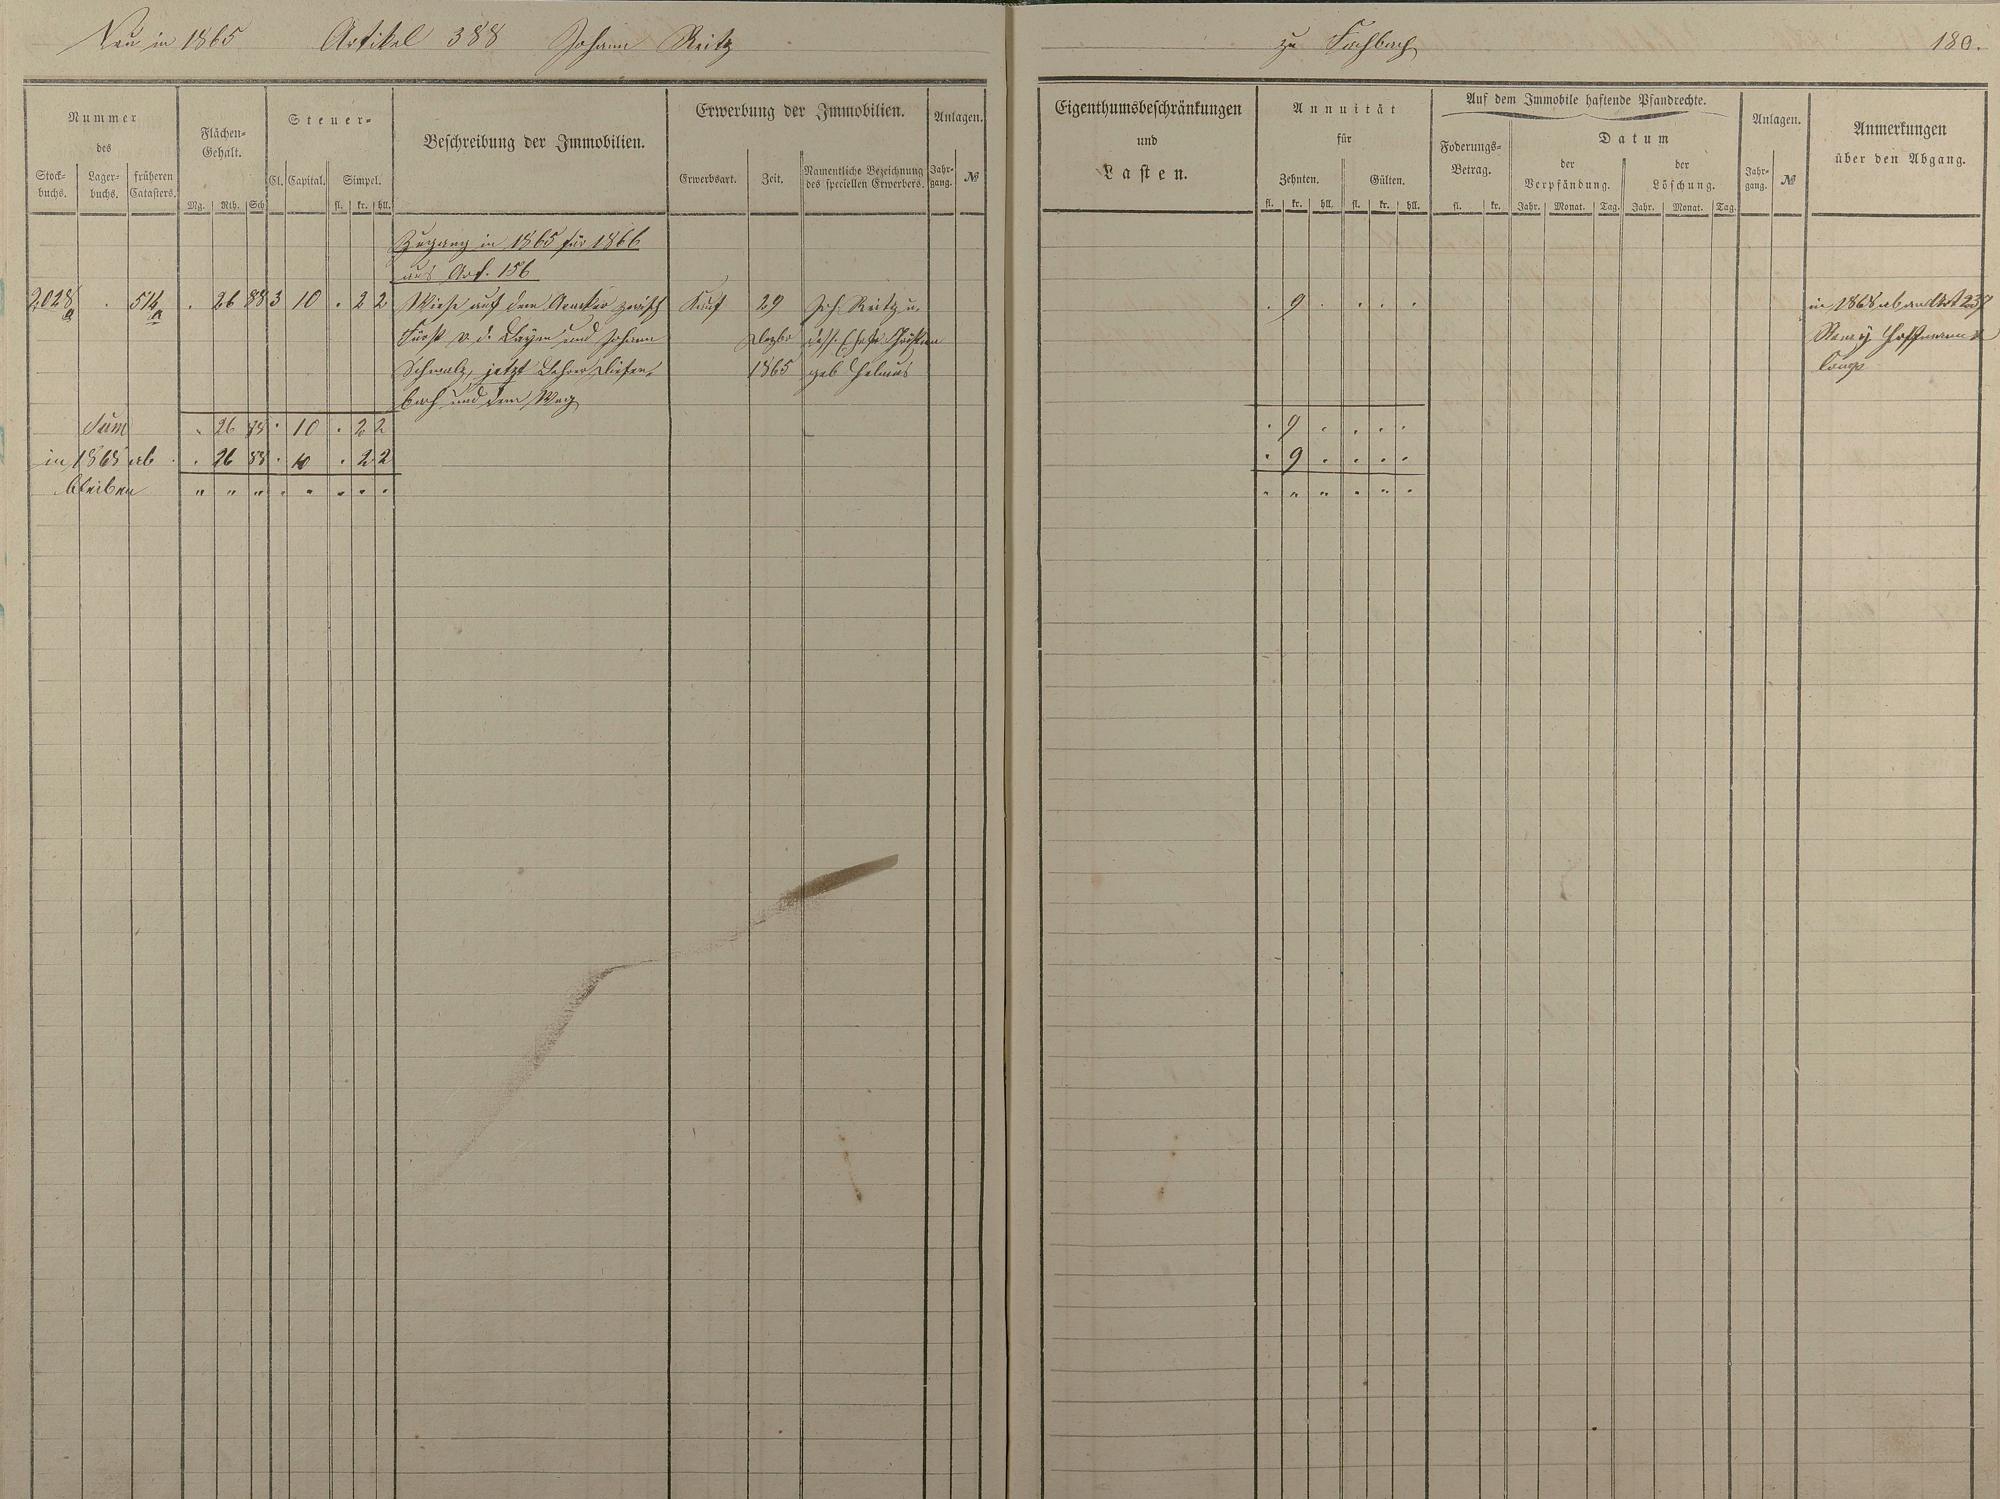 Neu in 1865 Artikel 388 Johann Reitz
zu Fachbach 180.
Nummer
des
Stock-
buchs.
Lager-
buchs.
früheren
Catasters.
Flächen-
Gehalt.
Mg. Rth. Sch.
Steuer-
Cl. Capital. Simpel.
fl. kr. hll.
Beschreibung der Immobilien.
Erwerbung der Immobilien.
Erwerbsart. Zeit. Namentliche Bezeichnung
des speciellen Erwerbers.
Anlagen.
Jahr-
gang. №
Eigenthumsbeschränkungen
und
Lasten.
Annuität
für
Zehnten. Gülten.
fl. kr. hll. fl. kr. hll.
Auf dem Immobile haftende Pfandrechte.
Foderungs-
Betrag.
fl. kr.
Datum
der
Verpfändung.
der
Löschung.
Jahr. Monat. Tag. Jahr. Monat. Tag.
Anlagen.
Jahr-
gang. №
Anmerkungen
über den Abgang.
Zugang in 1865 für 1866
aus Art. 156
2028 a . 514 a . 26 88 3 10 . 2 2 Wiese auf dem zwisch Kauf 29 Joh. Reitz u. . 9 . . . . in 1868 ab an Art 237
Fürst v. d. Leyen und Johann Dezbr dess. Ehefr. Christian Remy Hoffmann &
Schmalz, jetzt Lehrer Diefen- 1865 geb Helmus Comp
bach und dem Weg
Sum . 26 88 . 10 . 2 2 . 9 . . . .
in 1868 ab . . 26 88 . 10 . 2 2 . 9 . . . .
bleiben " " " . " . . . " " " . " "